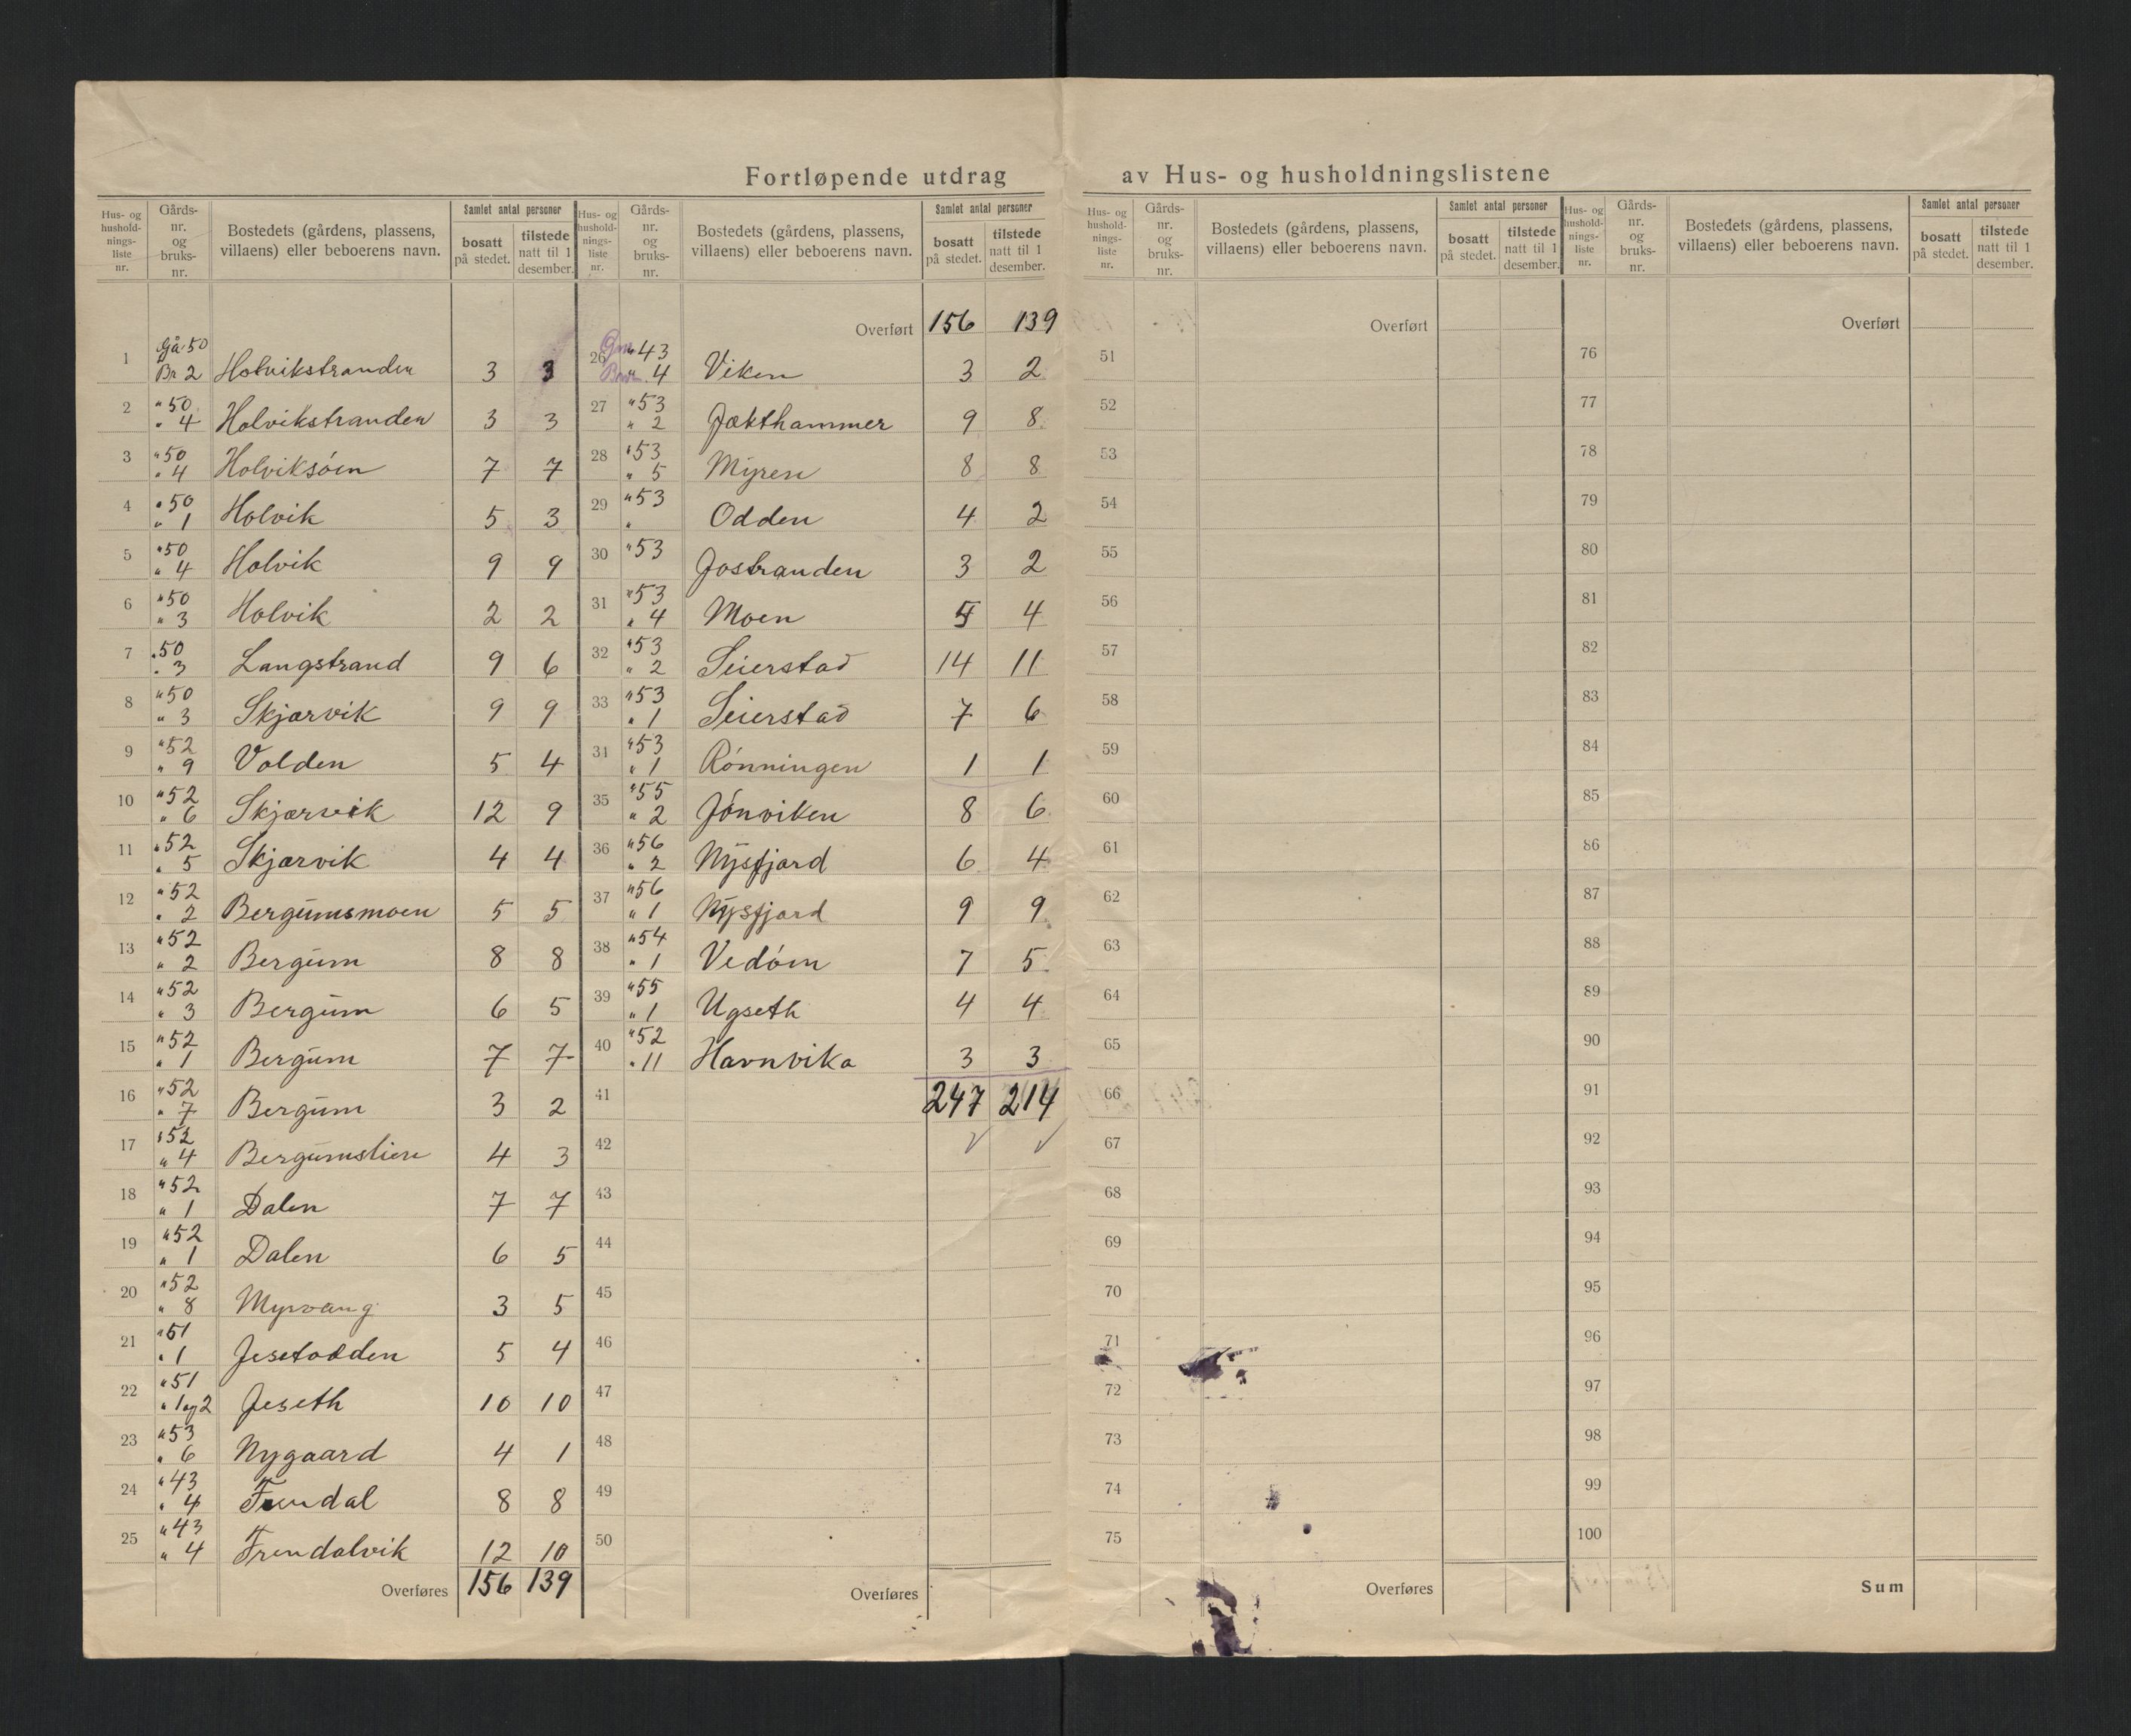 Fortløpende utdrag av Hus- og husholdningslistene
Hus- og hushold-nings-liste nr. | Gårds-nr. og bruks-nr. | Bostedets (gårdens, plassens, villaens) eller beboerens navn. | Samlet antal personer | bosatt på stedet. | tilstede natt til 1 desember.
1 | Gå 50 Br 2 | Holvikstranden | 3 | 3
2 | " 50 " 4 | Holvikstranden | 3 | 3
3 | " 50 " 4 | Holviksöen | 7 | 7
4 | " 50 " 1 | Holvik | 5 | 3
5 | " 50 " 4 | Holvik | 9 | 9
6 | " 50 " 3 | Holvik | 2 | 2
7 | " 50 " 3 | Langstrand | 9 | 6
8 | " 50 " 3 | Skjærvik | 9 | 9
9 | " 52 " 9 | Volden | 5 | 4
10 | " 52 " 6 | Skjærvik | 12 | 9
11 | " 52 " 5 | Skjærvik | 4 | 4
12 | " 52 " 2 | Bergumsmoen | 5 | 5
13 | " 52 " 2 | Bergum | 8 | 8
14 | " 52 " 3 | Bergum | 6 | 5
15 | " 52 " 1 | Bergum | 7 | 7
16 | " 52 " 7 | Bergum | 3 | 2
17 | " 52 " 4 | Bergumslien | 4 | 3
18 | " 52 " 1 | Dalen | 7 | 7
19 | " 52 " 1 | Dalen | 6 | 5
20 | " 52 " 8 | Myrvang | 3 | 5
21 | " 51 " 1 | Jesetodden | 5 | 4
22 | " 51 " 1 og 2 | Jeseth | 10 | 10
23 | " 53 " 6 | Nygaard | 4 | 1
24 | " 43 " 4 | Frendal | 8 | 8
25 | " 43 " 4 | Frendalvik | 12 | 10
Overføres | 156 | 139
Hus- og hushold-nings-liste nr. | Gårds-nr. og bruks-nr. | Bostedets (gårdens, plassens, villaens) eller beboerens navn. | Samlet antal personer | bosatt på stedet. | tilstede natt til 1 desember.
Overført | 156 | 139
26 | " 43 " 4 | Viken | 3 | 2
27 | " 53 " 2 | Jækthammer | 9 | 8
28 | " 53 " 5 | Myren | 8 | 8
29 | " 53 " | Odden | 4 | 2
30 | " 53 | Jostranden | 3 | 2
31 | " 53 " 4 | Moen | 5 | 4
32 | " 53 " 2 | Seierstad | 14 | 11
33 | " 53 " 1 | Seierstad | 7 | 6
31 | " 53 " 1 | Rönningen | 1 | 1
35 | " 55 " 2 | Jönviken | 8 | 6
36 | " 56 " 2 | Nysfjord | 6 | 4
37 | " 56 " 1 | Nysfjord | 9 | 9
38 | " 54 " 1 | Vedöen | 7 | 5
39 | " 55 " 1 | Ugseth | 4 | 4
40 | " 52 " 11 | Havnvika | 3 | 3
41 | 247 | 214
42
43
44
45
46
47
48
49
50
Overføres
Hus- og hushold-nings-liste nr. | Gårds-nr. og bruks-nr. | Bostedets (gårdens, plassens, villaens) eller beboerens navn. | Samlet antal personer | bosatt på stedet. | tilstede natt til 1 desember.
Overført
51
52
53
54
55
56
57
58
59
60
61
62
63
64
65
66
67
68
69
70
71
72
73
74
75
Overføres
Hus- og hushold-nings-liste nr. | Gårds-nr. og bruks-nr. | Bostedets (gårdens, plassens, villaens) eller beboerens navn. | Samlet antal personer | bosatt på stedet. | tilstede natt til 1 desember.
Overført
76
77
78
79
80
81
82
83
84
85
86
87
88
89
90
91
92
93
94
95
96
97
98
99
100
Sum